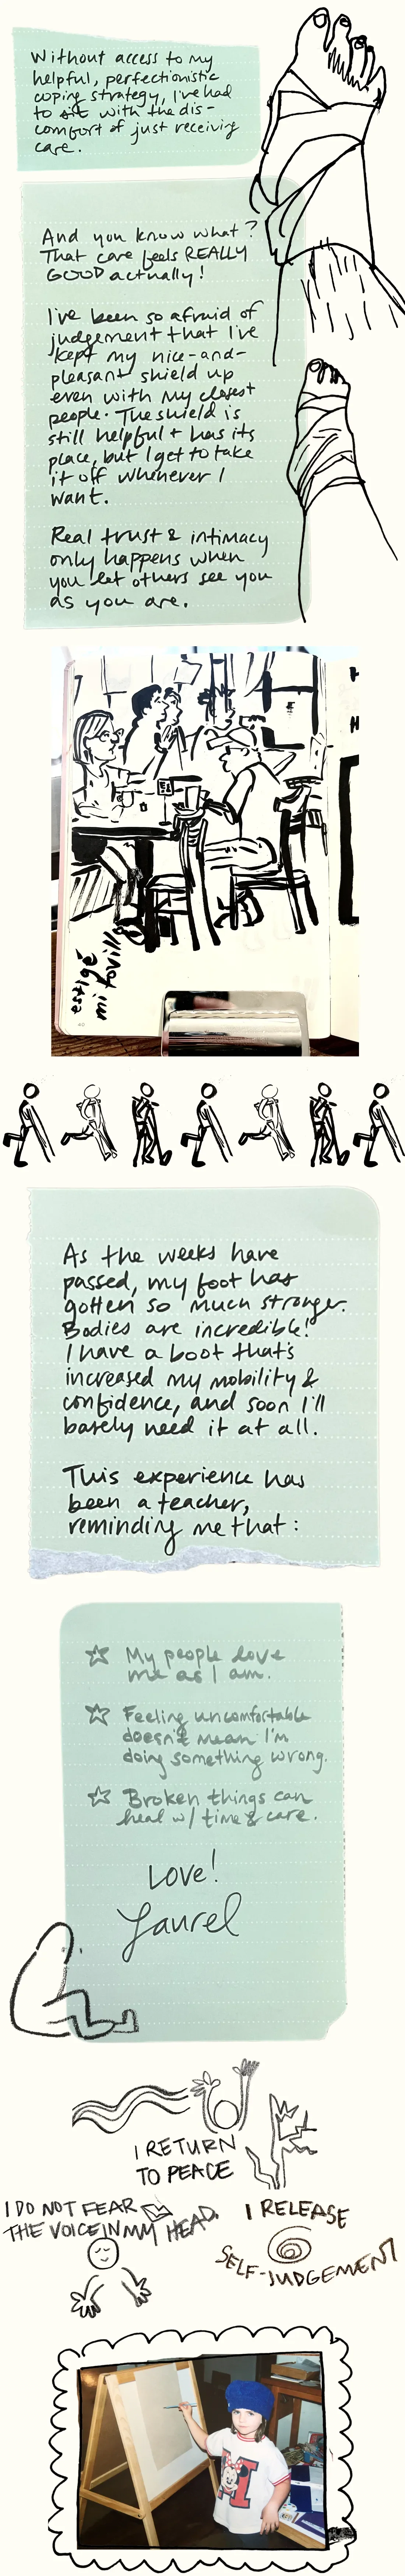 Without access to my
helpful, perfectionistic
coping strategy, I've had
to sit with the dis-
comfort of just receiving
care.
And you know what?
That care feels REALLY
GOOD actually!
I've been so afraid of
judgement that I've
kept my nice-and-
pleasant shield up
even with my closest
people. The shield is
still helpful + has its
place, but I get to take
it off whenever I
want.
Real trust & intimacy
only happens when
you let others see you
as you are.
mi tovillo
40
As the weeks have
passed, my foot has
gotten so much stronger.
Bodies are incredible!
I have a boot that's
increased my mobility &
confidence, and soon I'll
barely need it at all.
This experience has
been a teacher,
reminding me that:
My people love
me as I am.
Feeling uncomfortable
doesn't mean I'm
doing something wrong.
Broken things can
heal w/ time & care.
Love!
Laurel
I RETURN
TO PEACE
I DO NOT FEAR
THE VOICE IN MY HEAD.
I RELEASE
SELF-JUDGEMENT
M